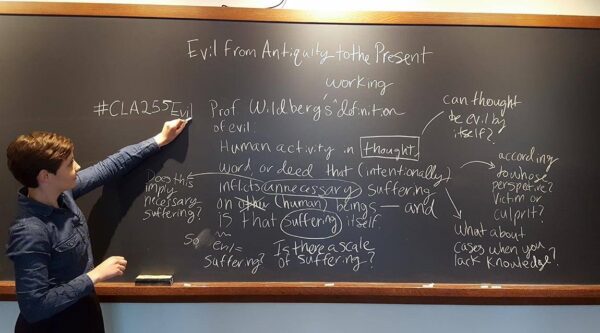 Evil from Antiquity to the Present
working
#CLA255Evil
Prof Wildberg's definition
of evil:
Human activity in thought,
word, or deed that (intentionally)
inflicts (unnecessary) suffering
on other (human) beings — and
is that suffering itself.
can thought
be evil by
itself?
according
to whose
perspective?
victim or
culprit?
What about
cases when you
lack knowledge?
Does this
imply
necessary
suffering?
So evil =
suffering?
Is there a scale
of suffering?